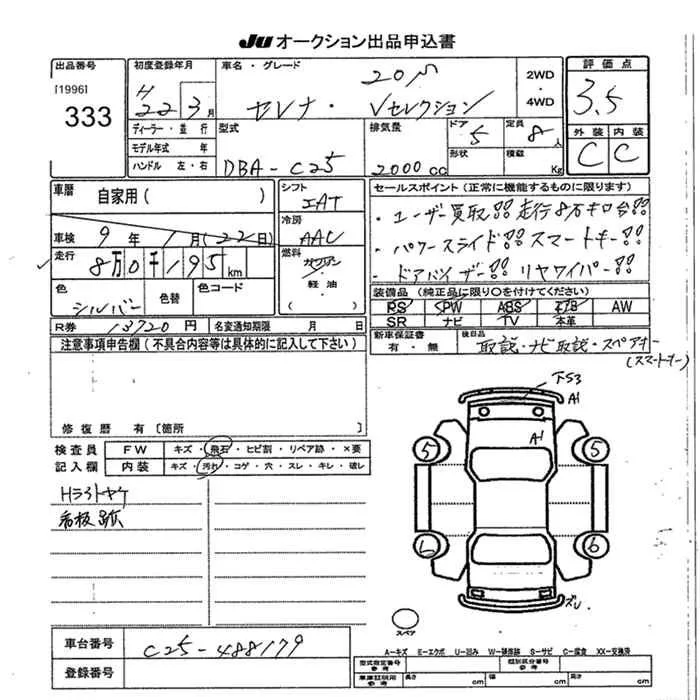 JU オークション出品申込書
出品番号 初度登録年月 車名・グレード 2WD・4WD 評価点
[1996] H 22 3月 20M 3.5
333 セレナ・Vセレクション
ディーラー・並行 型式 排気量 ドア 5 定員 8人 外装 内装
モデル年式 年 形状 積載 Kg C C
ハンドル 左・右 DBA-C25 2000cc
車歴 自家用( ) シフト IAT セールスポイント(正常に機能するものに限ります)
冷房 AAC ・ユーザー買取!! 走行8万キロ台!!
車検 9年1月(22日) ・パワースライド!! スマートキー!!
走行 8万0千195km 燃料 ガソリン・軽油・( ) ・ドアバイザー!! リヤワイパー!!
色 シルバー 色替 色コード 装備品(純正品に限り○を付けてください)
PS PW ABS エアB AW
R券 13720円 名変通知期限 月 日 SR ナビ TV 本革
注意事項申告欄(不具合内容等は具体的に記入して下さい) 新車保証書 有・無 後日品 取説・ナビ取説・スペアキー
(スマートキー)
修復歴 有〔箇所
検査員 FW キズ・飛石・ヒビ割・リペア跡・×要
記入欄 内装 キズ・汚れ・コゲ・穴・スレ・キレ・破レ
Hライトヤケ
看板跡
下S3
A1
A1
5 5
6
ズレ
スペア
車台番号 C25-488179
登録番号
A-キズ E-エクボ U-凹み W-補修跡 S-サビ C-腐食 XX-交換済
型式指定番号 参考 類別区分番号 参考
車庫証明用 参考 長さ cm 幅 cm 高さ cm